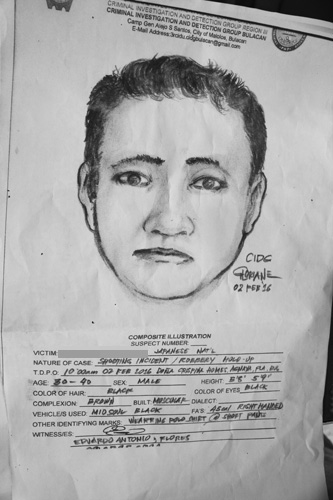 CRIMINAL INVESTIGATION AND DETECTION GROUP REGION
CRIMINAL INVESTIGATION AND DETECTION GROUP BULACAN
Camp Gen Alejo S Santos, City of Malolos, Bulacan
E-Mail Address:3rcidu.cidgbulacan@gmail.com
CIDG
02 FEB 16
COMPOSITE ILLUSTRATION
SUSPECT NUMBER:
VICTIM: JAPANESE NAT'L
NATURE OF CASE: SHOOTING INCIDENT / ROBBERY HOLD-UP
T.D.P.O: 10:00AM 02 FEB 2016 HOMES,
AGE: 30 - 40 SEX: MALE HEIGHT: 5'8" 5'9"
COLOR OF HAIR: BLACK COLOR OF EYES: BLACK
COMPLEXION: BROWN BUILT: MUSCULAR DIALECT:
VEHICLE/S USED: BLACK FA'S: RIGHT HANDED
OTHER IDENTIFYING MARKS: WEARING POLO SHIRT @ SHORT PANTS
WITNESS/ES:
EDUARDO ANTONIO y FLORES